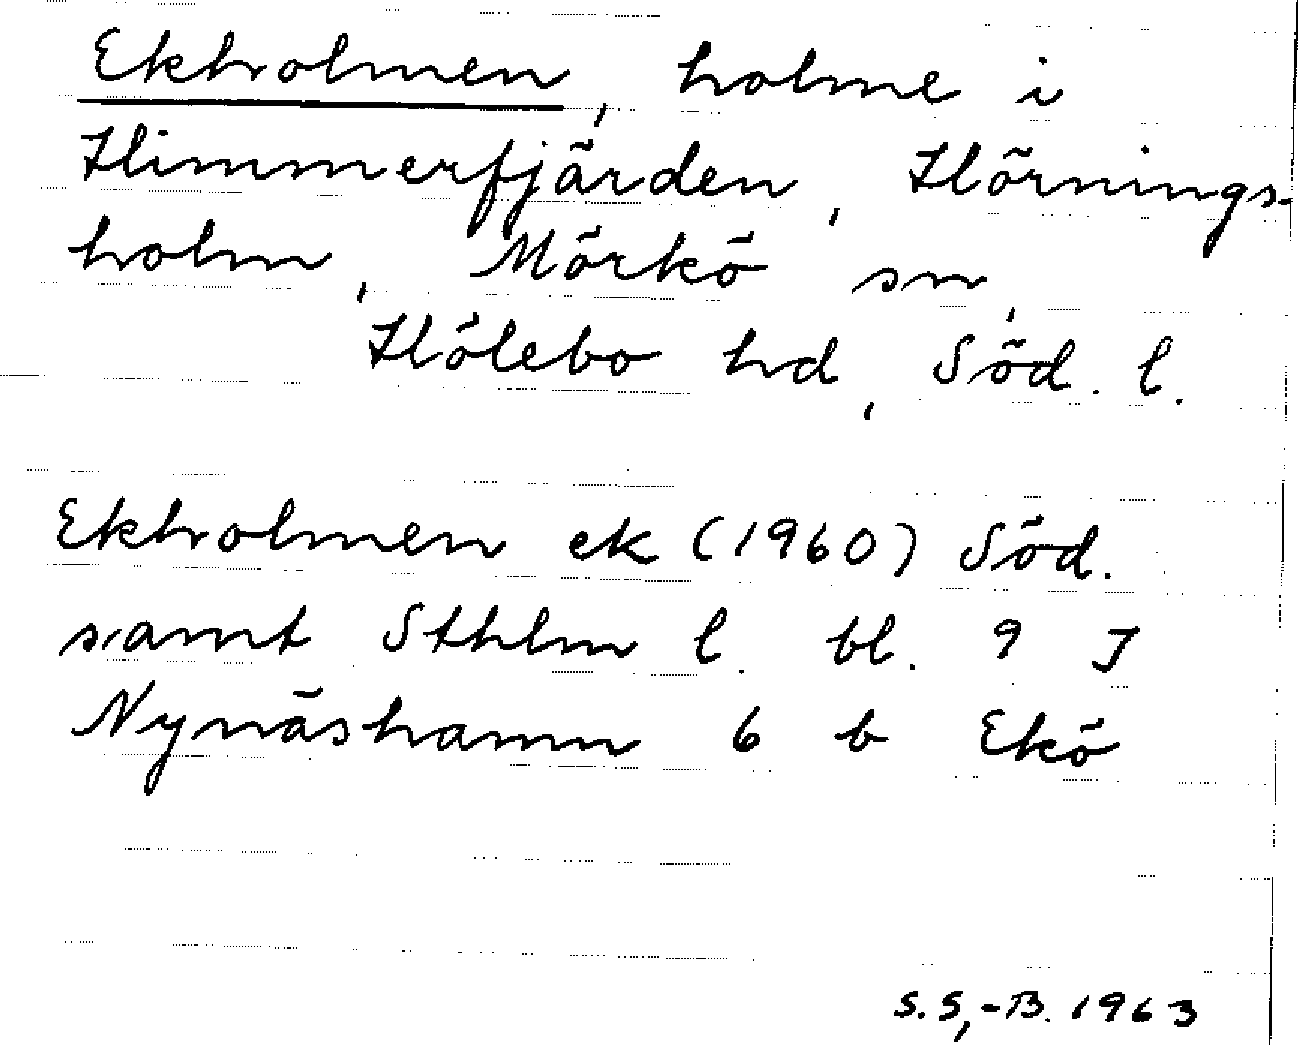 Ekholmen, holme i
Himmerfjärden, Hörnings-
holm, Mörkö sn,
Hölebo hd, Söd. l.
Ekholmen ek (1960) Söd.
samt Sthlm l. bl. 9 I
Nynäshamn 6 b Ekö
S.S,-B. 1963